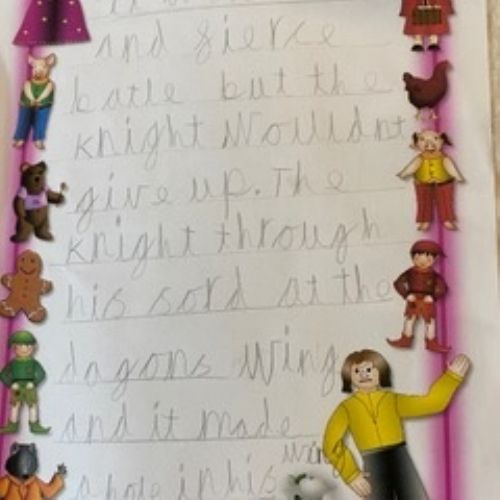 and fierce
batle but the
knight Woulldnt
give up. The
knight through
his sord at the
dagons Wing
and it made
a hole in his wing